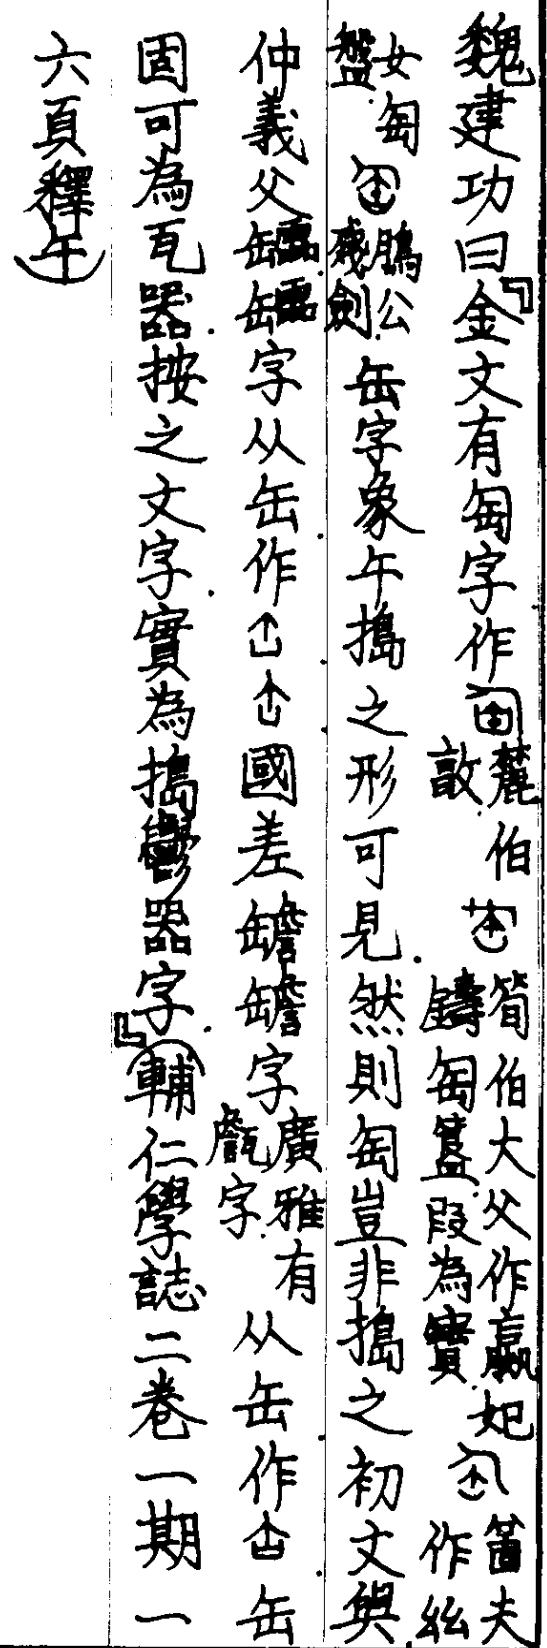 魏建功曰『金文有匋字作麓伯敦.筍伯大父作嬴妃鑄匋簋.叚為寶.夫作絲
女匋盤.公劍.缶字象午搗之形可見.然則匋豈非搗之初文與
仲義父䍥䍥字从缶作國差𦉜𦉜字廣雅有字.从缶作缶
固可為瓦器.按之文字.實為搗鬱器字.』(輔仁學誌二卷一期一
六頁釋午)